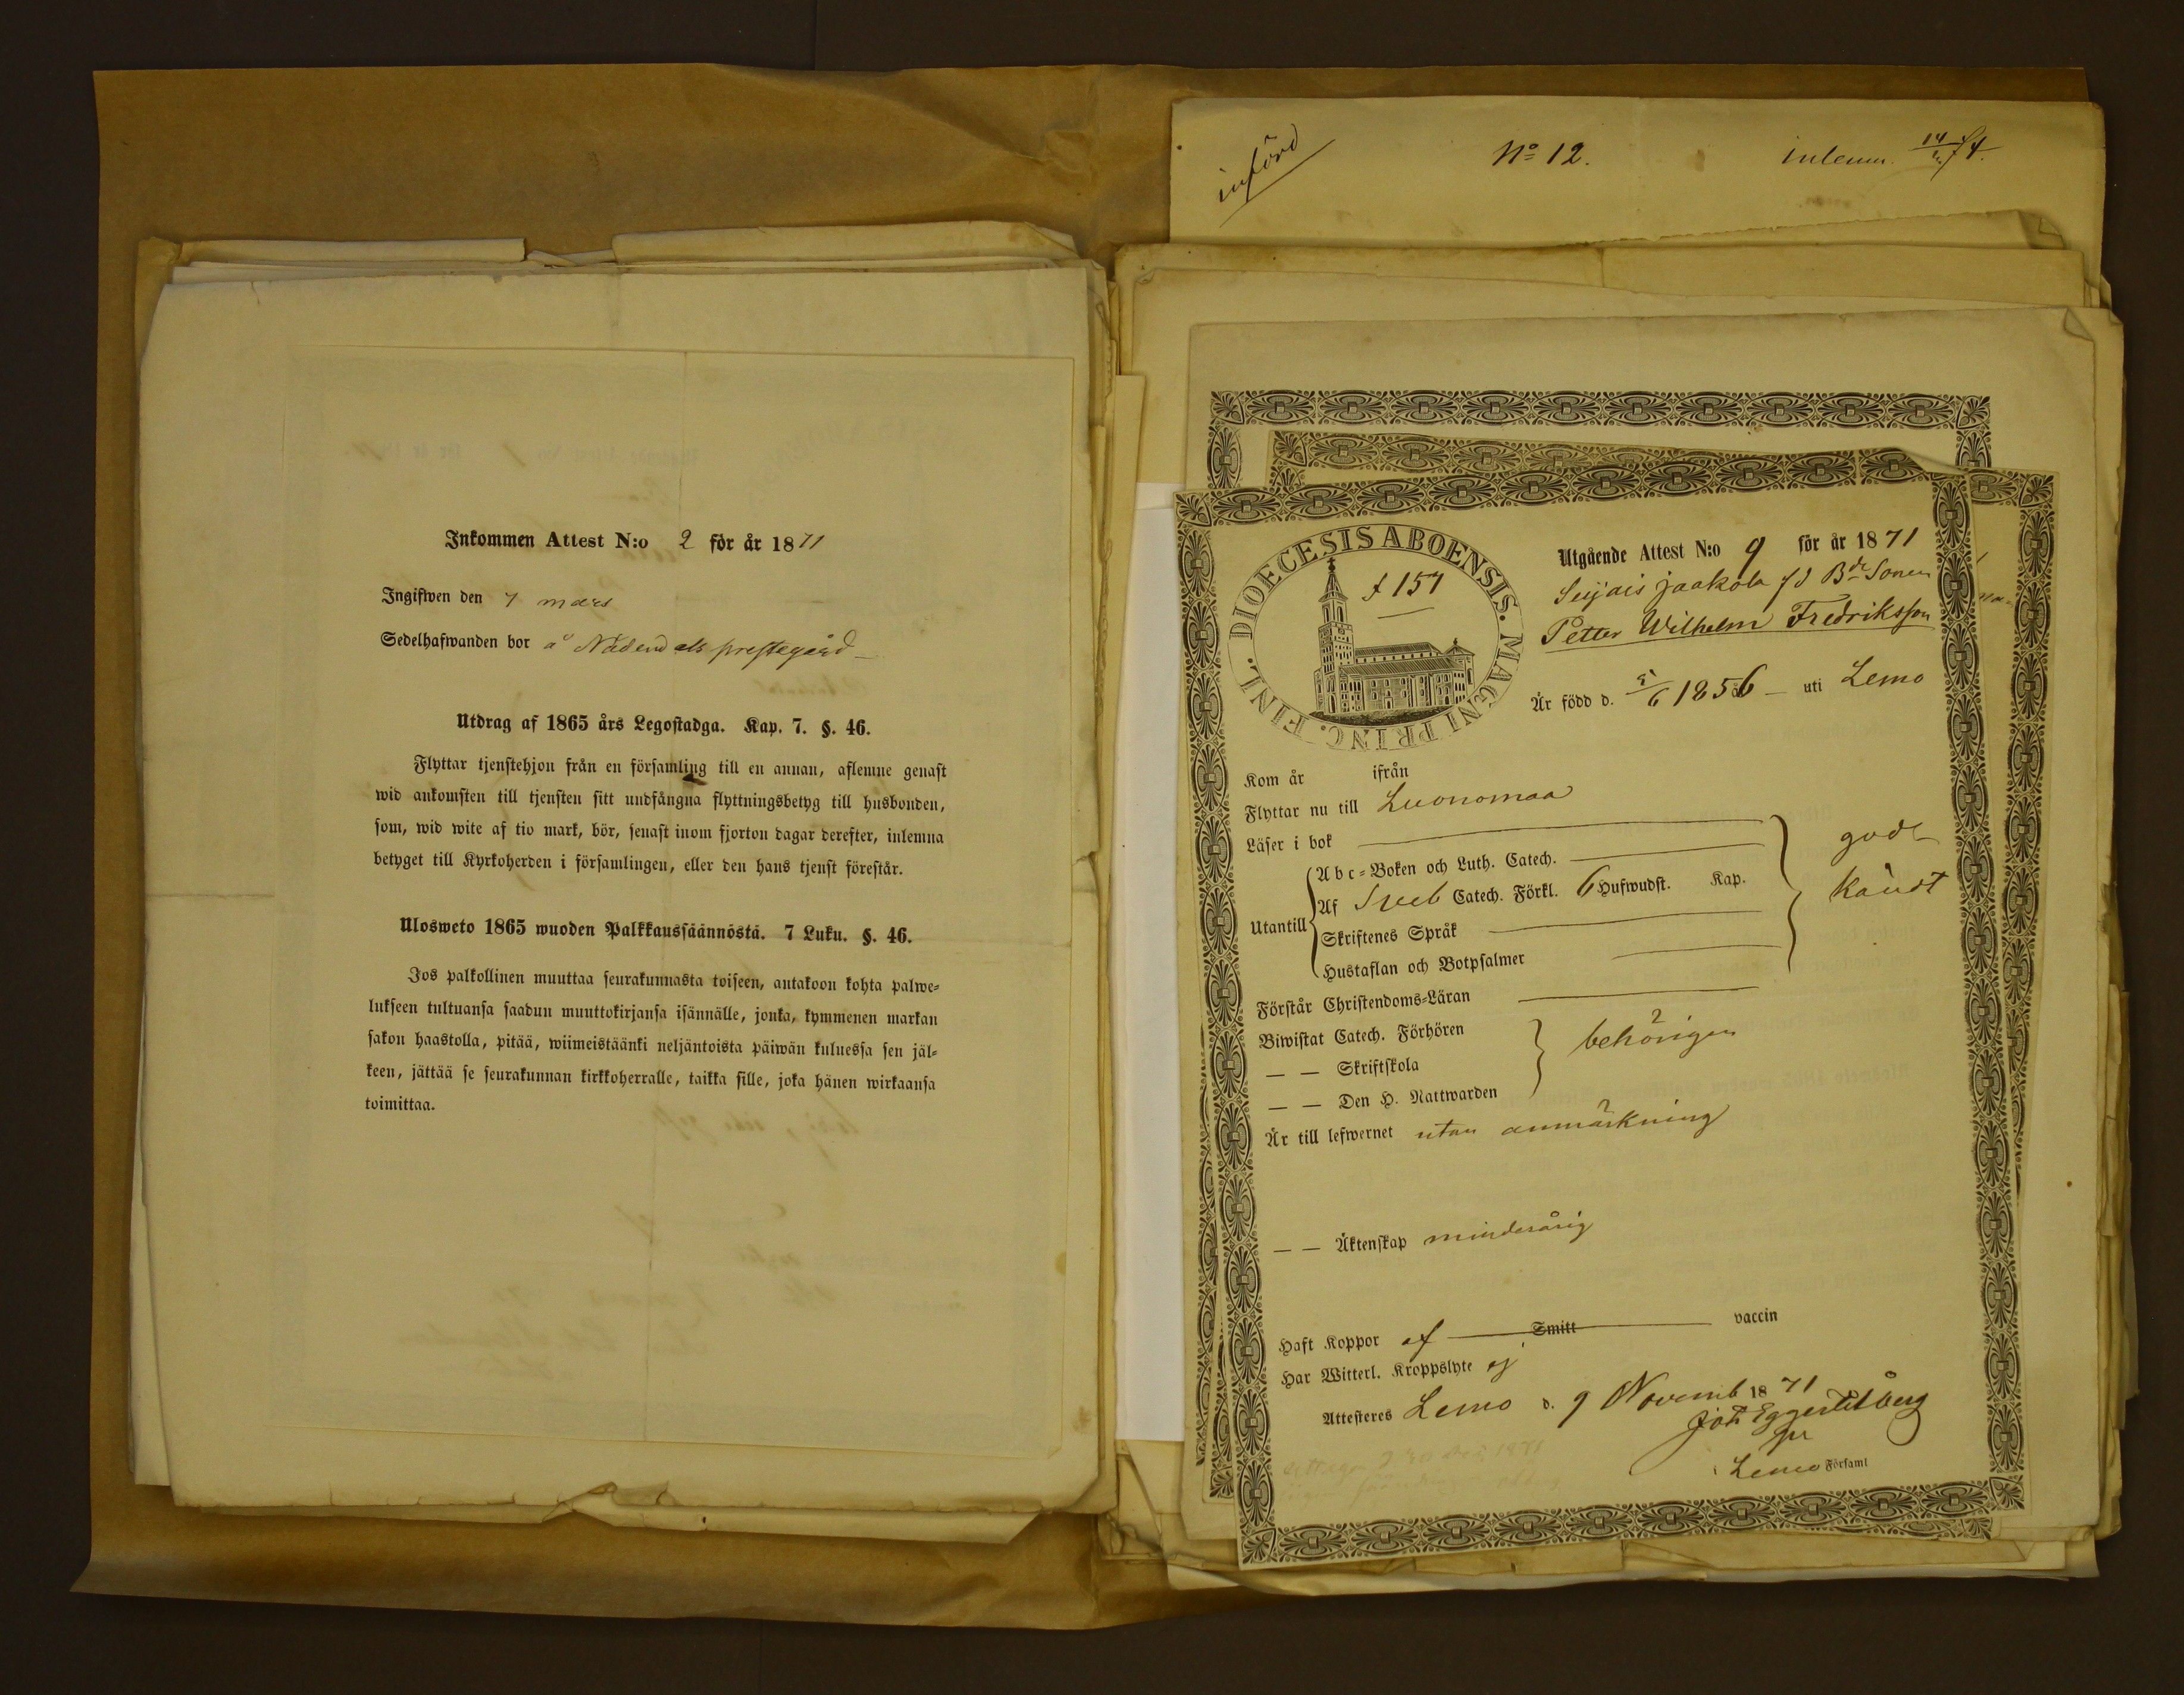 Inkommen Attest N:o 2 för år 1871
Ingifwen den 7 mars
Sedelhafwanden bor å Nådendals prestegård
Utdrag af 1865 års Legostadga. Kap. 7. §. 46.
Flyttar tjenstehjon från en församling till en annan, aflemne genast
wid ankomsten till tjensten sitt undfångna flyttningsbetyg till husbonden,
som, wid wite af tio mark, bör, senast inom fjorton dagar derefter, inlemna
betyget till Kyrkoherden i församlingen, eller den hans tjenst förestår.
Ulosweto 1865 wuoden Palkkaussäännöstä. 7 Luku. §. 46.
Jos palkollinen muuttaa seurakunnasta toiseen, antakoon kohta palwe=
lukseen tultuansa saadun muuttokirjansa isännälle, jonka, kymmenen markan
sakon haastolla, pitää, wiimeistäänki neljäntoista päiwän kuluessa sen jäl=
keen, jättää se seurakunnan kirkkoherralle, taikka sille, joka hänen wirkaansa
toimittaa.
införd
No 12.
inlemn. 74.
DIOECESIS ABOENSIS. MAGNI PRINC. FINL.
f 157
Utgående Attest N:o 9 för år 1871
Jaakola Sonen
Petter Wilhelm Fredriksson
Är född d. 5/6 1856 uti Lemo
Kom år ifrån
Flyttar nu till Luonomaa
Läser i bok
Utantill
Abc=Boken och Luth. Catech.
Af Sveb Catech. Förkl. 6 Hufwudst. Kap.
Skriftenes Språk
Hustaflan och Botpsalmer
god=
kändt
Förstår Christendoms=Läran
Biwistat Catech. Förhören
— — Skriftskola
— — Den H. Nattwarden
behörigen
Är till lefwernet utan anmärkning
— — Äktenskap minderårig
Haft Koppor af Smitt vaccin
Har Witterl. Kroppslyte ej
Attesteres Lemo d. 9 Novemb 1871
Joh
i Lemo Församl